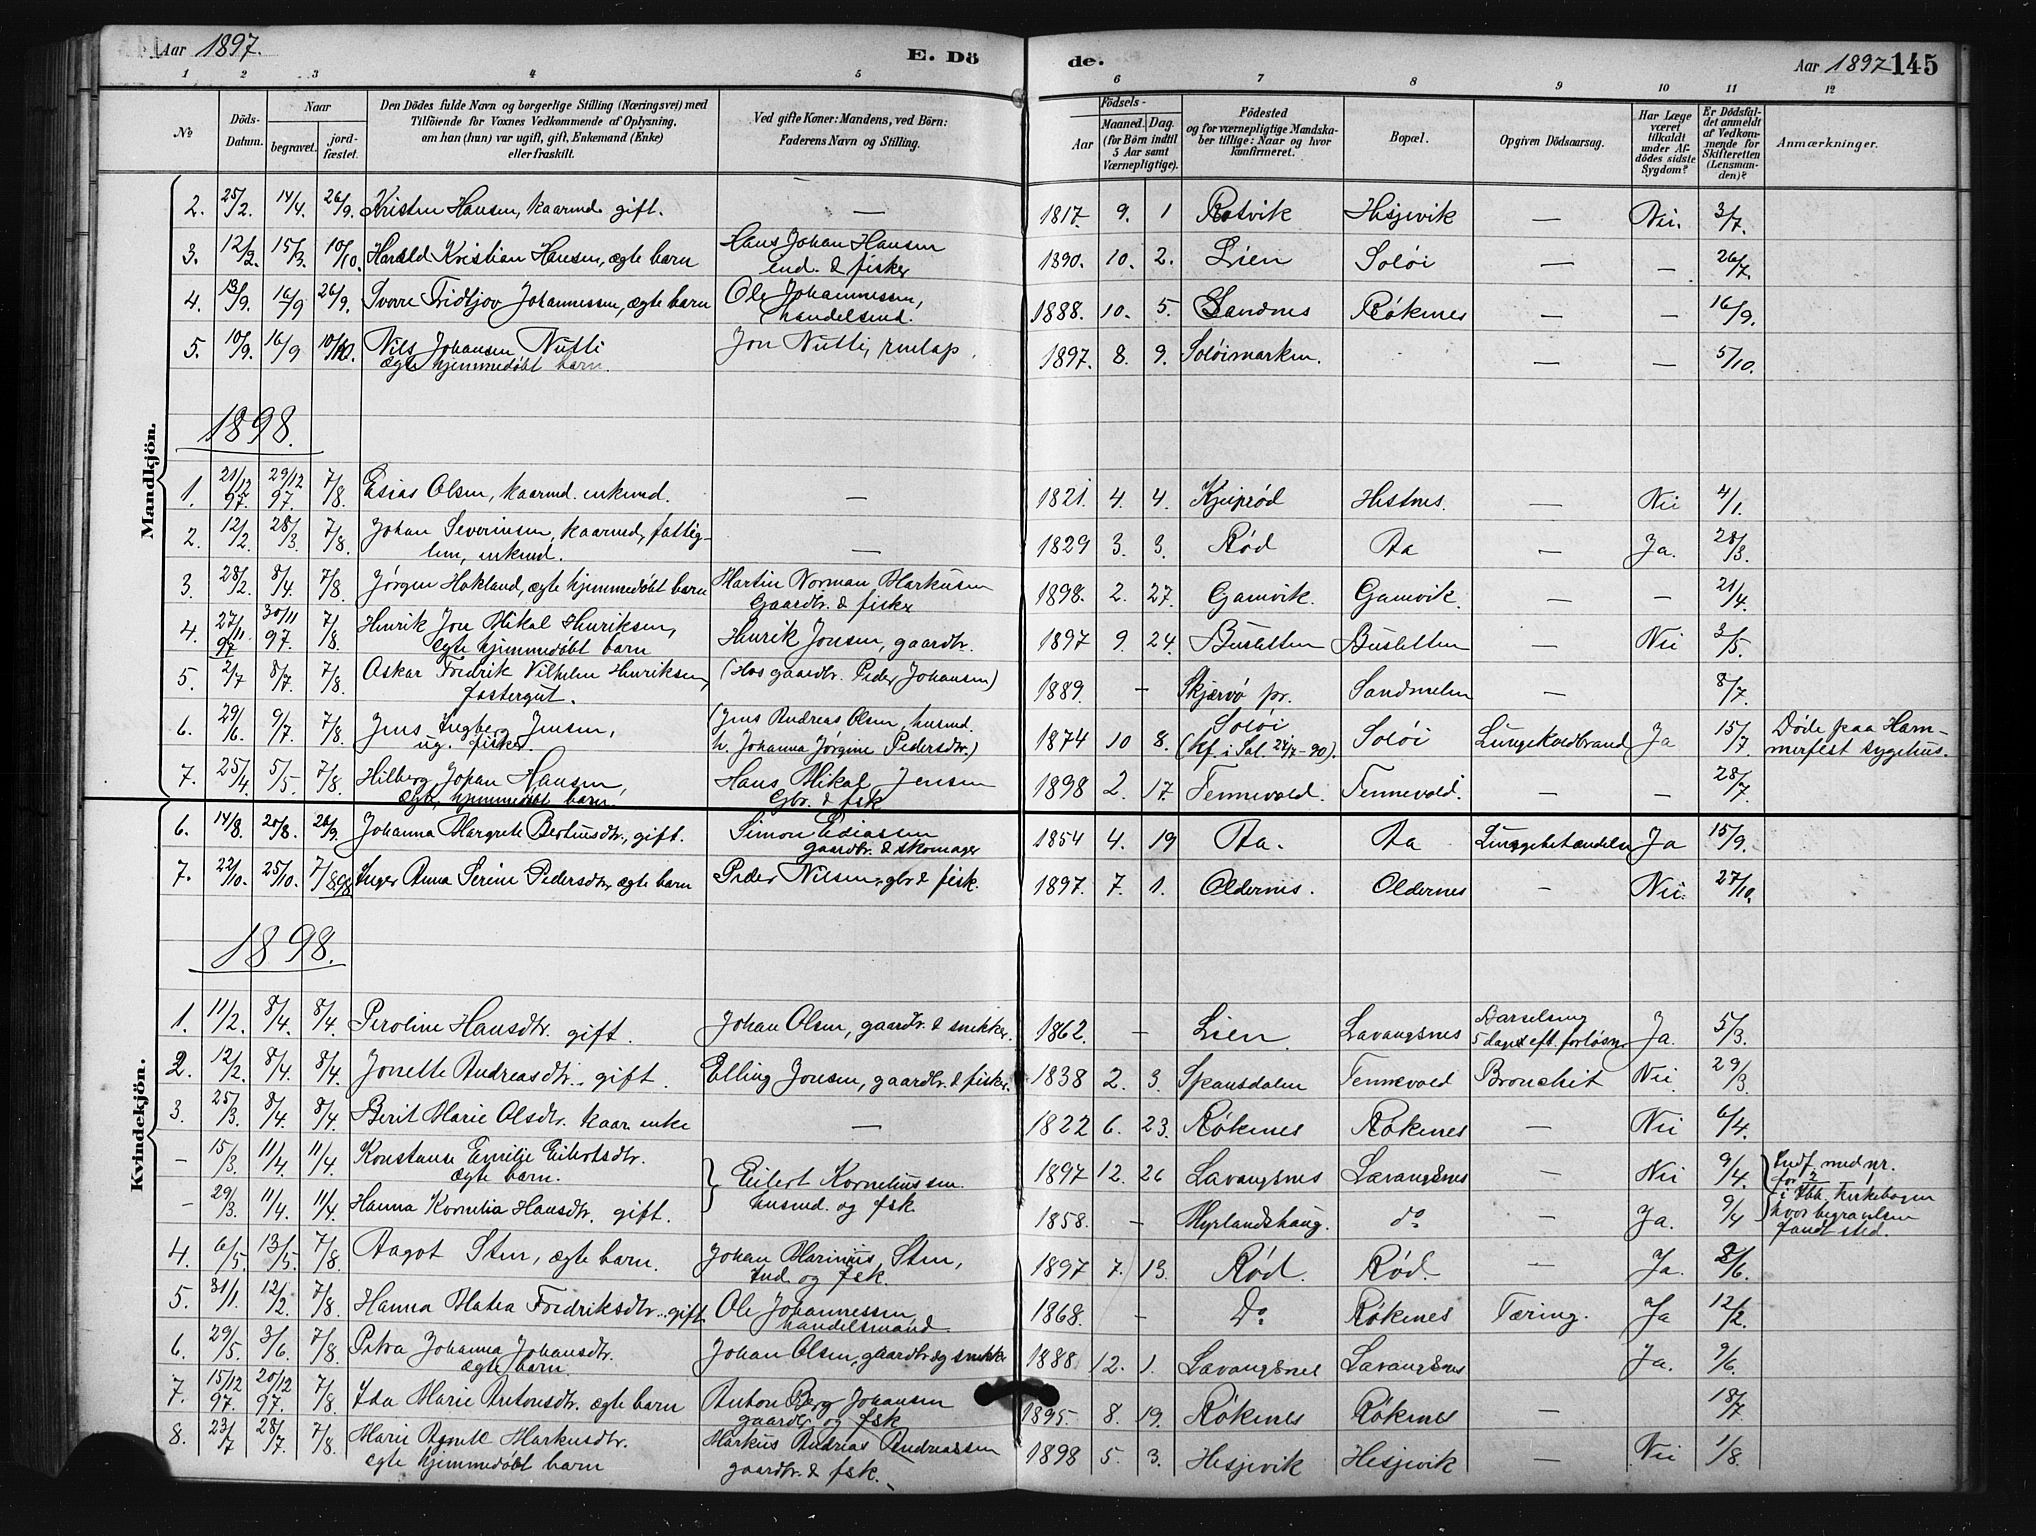 Aar 1897. E. Dö de. Aar 1897 145
1 2 3 4 5 6 7 8 9 10 11 12
№ Döds-Datum. Naar begravet. jord-fæstet. Den Dödes fulde Navn og borgerlige Stilling (Næringsvei) med Tilföiende for Voxnes Vedkommende af Oplysning, om han (hun) var ugift, gift, Enkemand (Enke) eller fraskilt. Ved gifte Koner: Mandens, ved Börn: Faderens Navn og Stilling. Födsels- Aar Maaned. Dag. (for Börn indtil 5 Aar samt Værnepligtige). Födested og for værnepligtige Mandskaber tillige: Naar og hvor konfirmeret. Bopæl. Opgiven Dödsaarsag. Har Læge været tilkaldt under Afdödes sidste Sygdom? Er Dödsfaldet anmeldt af Vedkommende for Skifteretten (Lensmanden)? Anmærkninger.
Mandkjön.
2. 25/2. 14/4. 26/9. Kristen Hansen, kaarmd. gift. — 1817 9. 1 Rotvik Hesjevik — Nei. 3/7.
3. 12/2. 15/3. 10/10. Harald Kristian Hansen, ægte barn Hans Johan Hansen ind. & fisker 1890. 10. 2. Lien Soløi — — 26/7.
4. 13/9. 16/9 26/9. Sverre Fridtjov Johannessen, ægte barn Ole Johannessen, handelsmd. 1888. 10. 5. Sandnes Røkenes — — 16/9.
5. 10/9. 16/9 10/10. Nils Johansen Nutti ægte hjemmedøbt barn. Jon Nutti, renlap. 1897. 8. 9. Soløimarken. — — 5/10.
1898.
1. 21/12 97. 29/12 97. 7/8. Esias Olsen, kaarmd. enkemd. — 1821. 4. 4. Kjeiprød Hestnes. — Nei 4/1.
2. 12/2. 28/3. 7/8. Johan Severinsen, kaarmd, fattiglem, enkmd. — 1829 3. 3. Rød Aa — Ja. 28/3.
3. 28/2. 8/4. 7/8. Jørgen Hokland, ægte hjemmedøbt barn Martin Norman Markusen Gaardbr. & fisker 1898. 2. 27. Gamvik. Gamvik. — — 21/4.
4. 27/11 97 30/11 97. 7/8. Henrik Jon Mikal Henriksen, ægte hjemmedøbt barn Henrik Jonsen, gaardbr. 1897 9. 24. Busletten Busletten — Nei 3/5.
5. 2/7 8/7. 7/8. Oskar Fredrik Vilhelm Henriksen, fostergut. (Hos gaardbr. Peder Johansen) 1889. — Skjærvø pr. Sandmelen — 8/7.
6. 29/6. 9/7. 7/8. Jens Ingberg Jensen, ug. fisker. (Jens Andreas Olsen, husmd. h. Johanna Jørgine Pedersdtr.) 1874 10 8. Soløi (kf. i Sal. 24/7-90). Soløi Lungekoldbrand Ja 15/7. Døde paa Hammerfest sygehus.
7. 25/4. 5/5. 7/8. Hilberg Johan Hansen, ægte hjemmedøbt barn Hans Mikal Jensen Gbr. & fsk 1898 2. 17. Tennevold. Tennevold. — — 28/7.
Kvindekjön.
6. 14/8. 20/8. 26/9 Johanna Margrete Bertheusdtr., gift. Simon Ediassen gaardbr. & skomager 1854 4. 19 Aa. Aa Lungebetændelse Ja 15/9.
7. 22/10. 25/10. 7/8 98 Inger Anna Serine Pedersdtr, ægte barn Peder Nilsen, gbr & fisk. 1897. 7. 1. Oldernes. Oldernes — Nei. 27/10.
1898.
1. 11/2. 8/4. 8/4. Peroline Hansdtr. gift. Johan Olsen, gaardbr. & snekker. 1862. — Lien. Lavangsnes Barselseng 5 dage eft. forløsn. Ja. 5/3.
2. 12/2. 8/4. 8/4. Jonette Andreasdtr. gift. Elling Jonsen, gaardbr. & fisker. 1838 2. 3. Spansdalen Tennevold Bronchit Nei. 29/3.
3. 25/3. 8/4. 8/4. Berit Marie Olsdtr. kaarenke — 1822 6. 23. Røkenes Røkenes — Nei 6/4.
— 15/3. 11/4. 11/4. Konstanse Emilje Eilertsdtr. ægte barn. Eilert Korneliussen. husmd. og fsk. 1897 12. 26 Lavangsnes Lavangsnes — Nei 9/4. Indf. med nr. for i Ibb. kirkebogen hvor begravelsen fandt sted.
— 29/3. 11/4. 11/4. Hanna Kornelia Hansdtr. gift. 1858. — Myrlandshaug. do — Ja. 9/4
4. 6/5. 13/5. 7/8. Aagot Sten, ægte barn. Johan Marinius Sten, Ind. og fsk. 1897 7. 13. Rød. Rød. — Ja. 2/6.
5. 31/1. 12/2. 7/8. Hanna Matea Fredriksdtr. gift. Ole Johannessen, handelsmand. 1868. — Do Røkenes Tæring. Ja 12/2.
6. 29/5. 3/6. 7/8. Petra Johanna Johansdtr. ægte barn. Johan Olsen, gaardbr og snekker 1888. 12. 1. Lavangsnes Lavangsnes Ja. 9/6.
7. 15/12 97. 20/12 97. 7/8. Ida Marie Antonsdtr. ægte barn Anton Berg Johansen gaardbr. og fsk 1895. 8. 19. Røkenes Røkenes — 18/7
8. 23/7 28/7. 7/8. Marie Markusdtr. ægte hjemmedøbt barn Markus Andreas Andreassen gaardbr. & fsk. 1898 5. 3. Hesjevik Hesjevik — Nei 1/8.